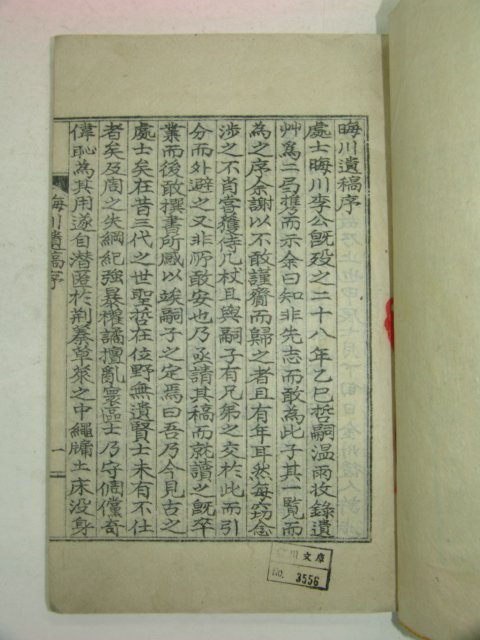 晦川遺稿序
處士晦川李公旣歿之二十八年乙巳哲嗣溫雨收錄遺
艸爲二弓携而示余曰知非先志而敢為此子其一覽而
為之序余謝以不敢謹齎而歸之者且有年耳然每窃念
涉之不肖嘗獲侍几杖且與嗣子有兄弟之交於此而引
分而外避之又非所敢安也乃亟請其稿而就讀之旣卒
業而後敢撰書所感以竢嗣子之定焉曰吾乃今見古之
處士矣在昔三代之世聖哲在位野無遺賢士未有不仕
者矣及周之失綱紀強暴權譎擅亂寰區士乃守倜儻奇
偉恥為其用遂自潜匿於荆蓁草萊之中繩牖土床没身
晦川遺稿序
一
川文庫
NO. 3556